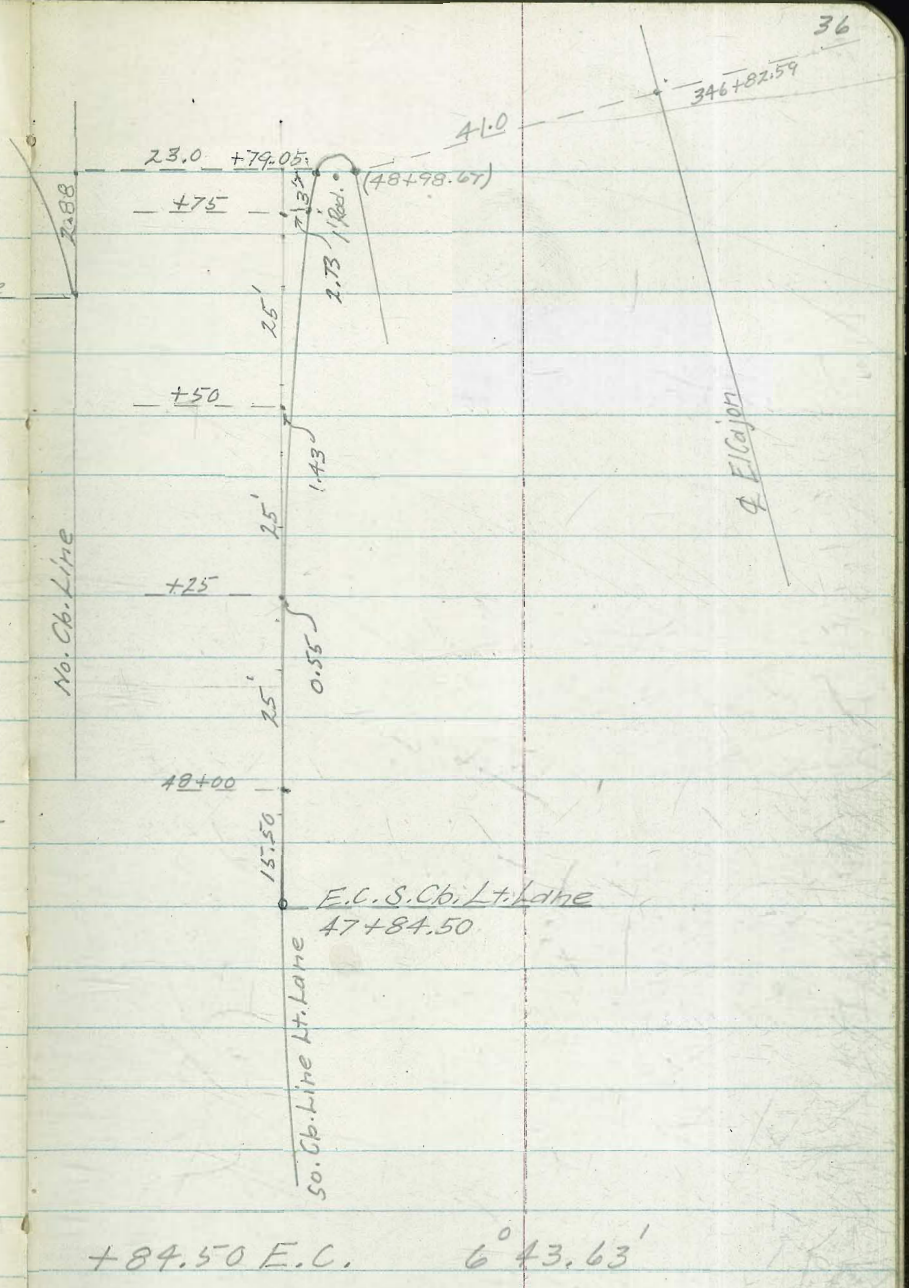 36
346+82.59
41.0
23.0 +79.05
(48+98.67)
2.88
+75
1' Rad.
2.73
25'
+50
1.43
25'
℄ El Cajon
No. Cb. Line
+25
0.55
25'
48+00
15.50
E.C. S. Cb. Lt. Lane
47+84.50
So. Cb. Line Lt. Lane
+84.50 E.C. 6° 43.63'